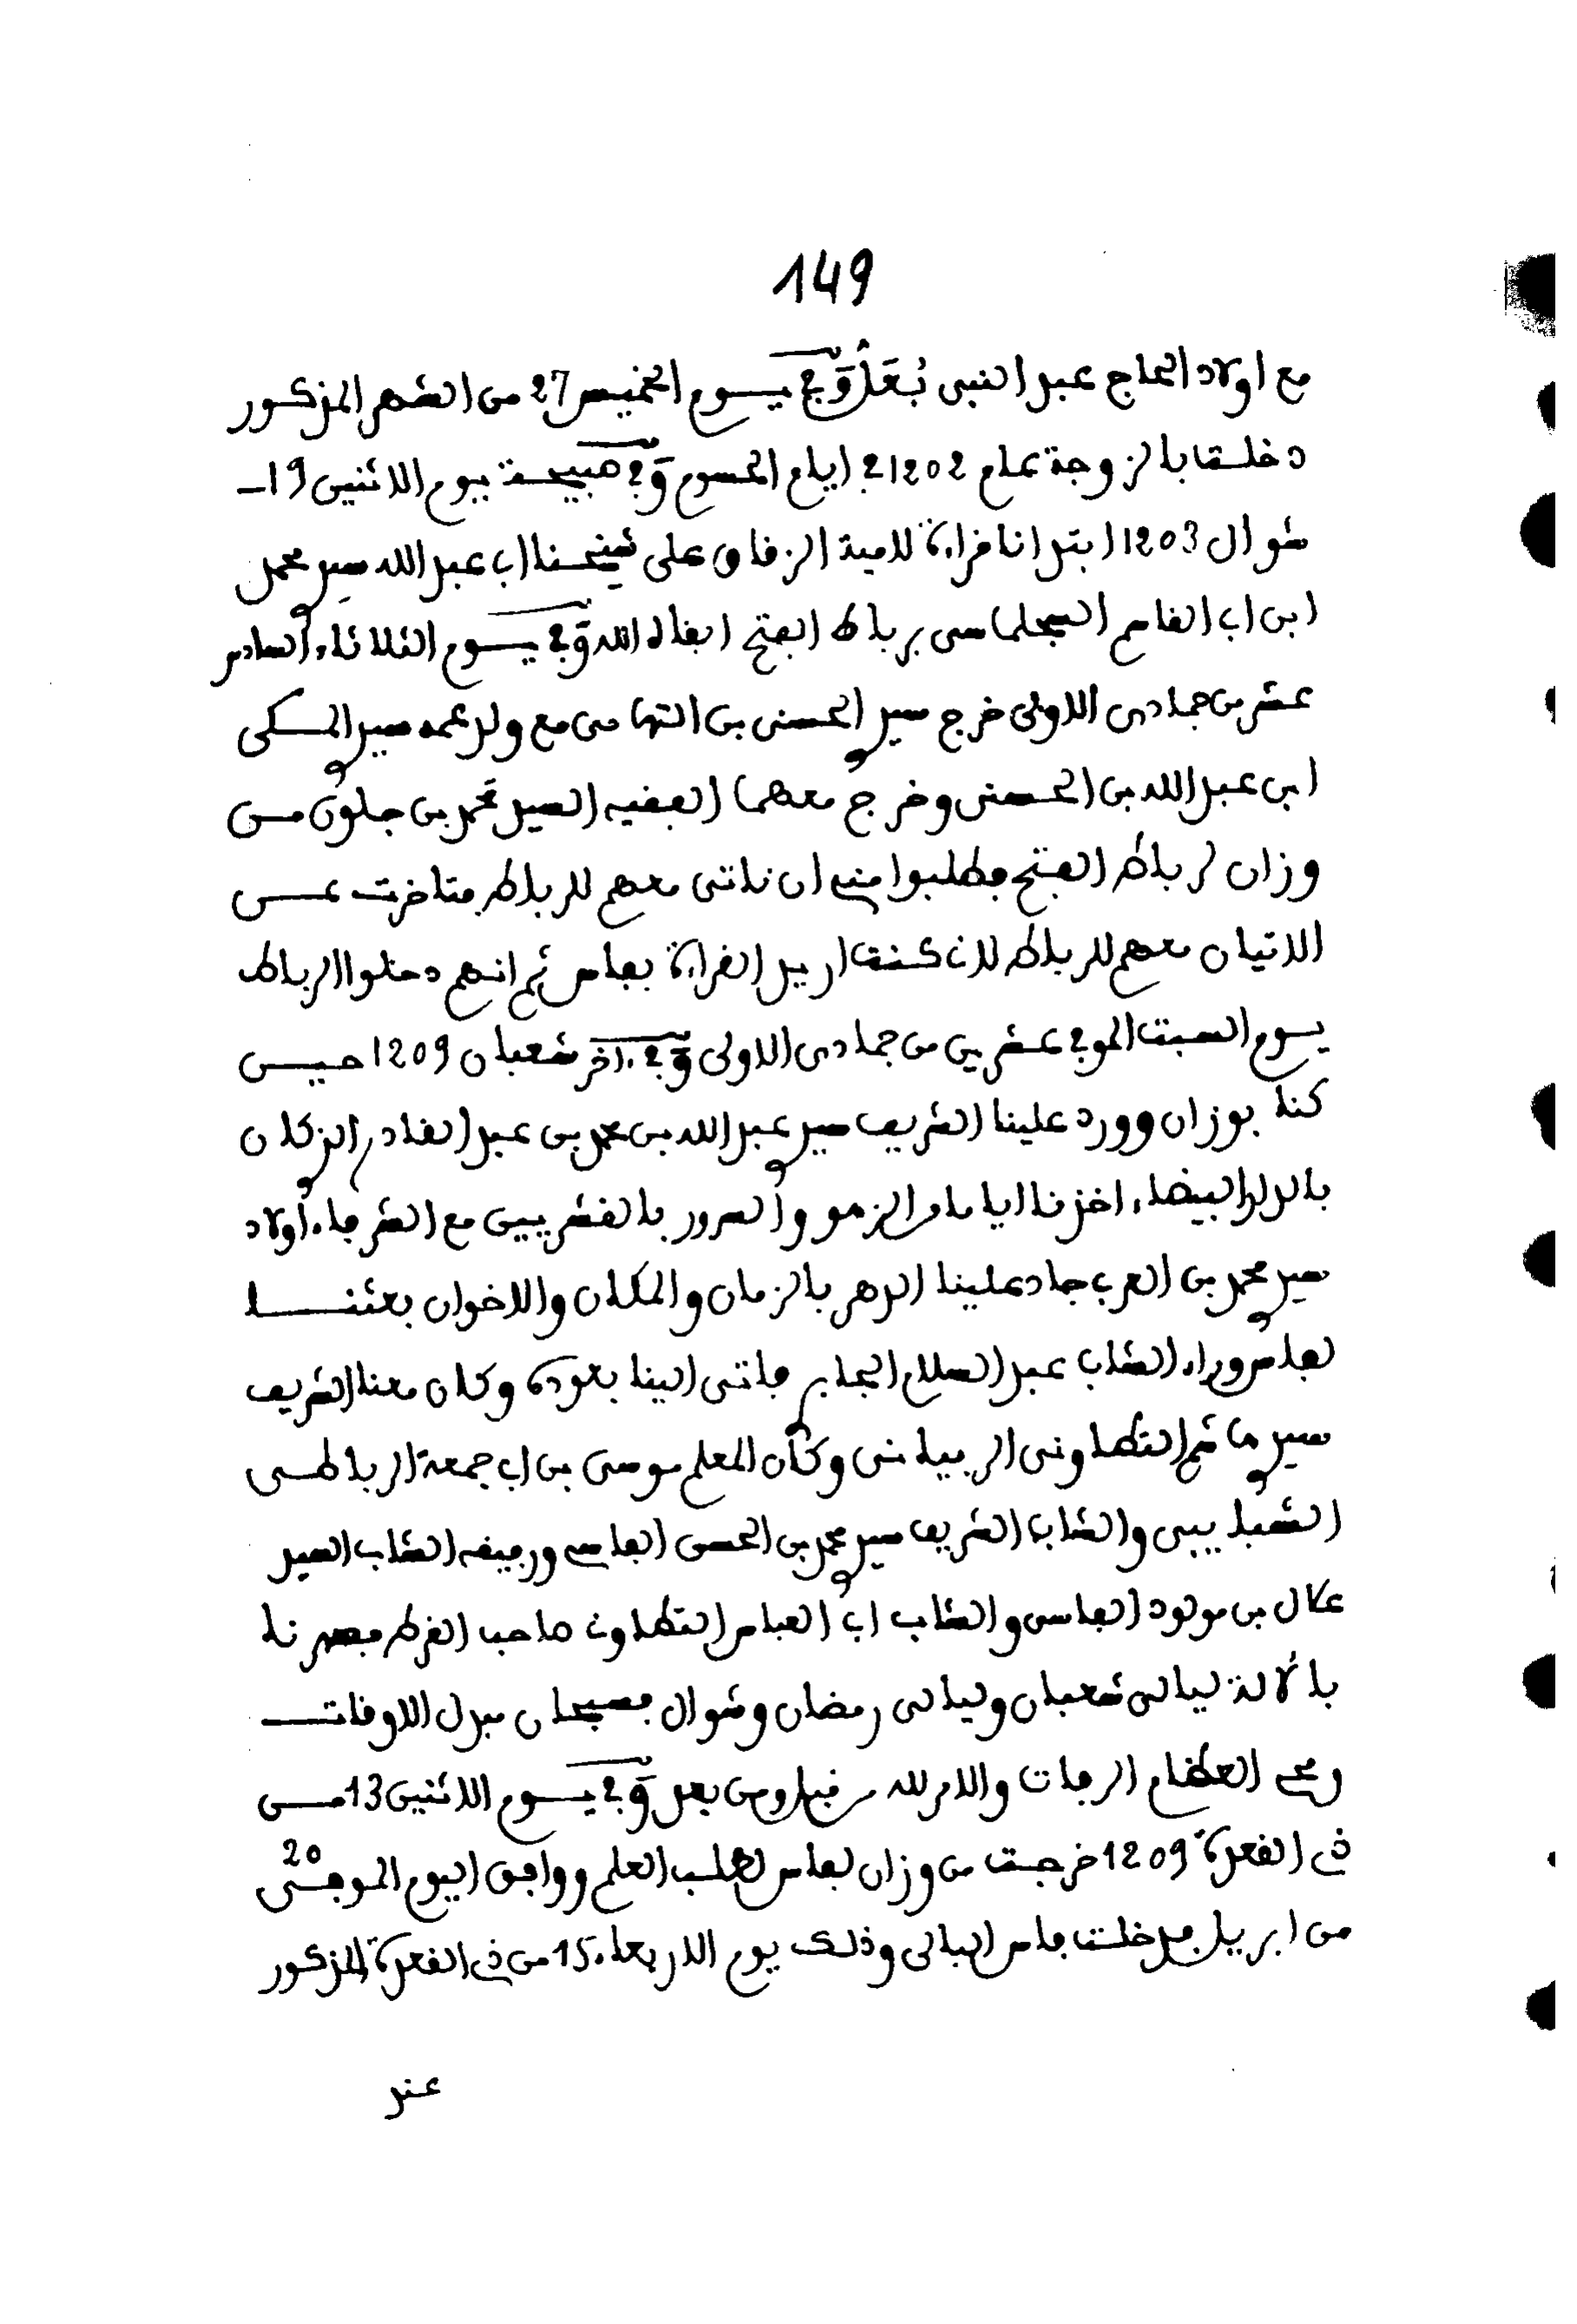 149
مع اولاد الحاج عبد النبي بُعَدُّو وفي يـوم الخميس 27 من الشهر المذكور
دخلت بالزوجة عام 1202 في ايام الحسوم وفي صبيحة يوم الاثنين 19
شوال 1203 ابتدانا قراءة لامية الزقاق على شيخنا ابي عبد الله سيدي محمد
ابن ابي القاسم السجلماسي برباط الفتح ابقاه الله وفي يـوم الثلاثاء السادس
عشر من جمادى الاولى خرج سيدي الحسني بن التهامي مع ولد عمه سيدي المكي
ابن عبد الله بن الحسني وخرج معهما الفقيه السيد محمد بن جلون مـن
وزان لرباط الفتح فطلبوا مني ان ناتي معهم للرباط فتاخرت عـن
الاتيان معهم للرباط لاني كنت اريد القراءة بفاس ثم انهم دخلوا الرباط
يـوم السبت الموفي عشرين من جمادى الاولى وفي ءاخر شعبان 1209 حيـن
كنا بوزان وورد علينا الشريف سيدي عبد الله بن محمد بن عبد القادر الذي كان
بالدار البيضاء اخذنا اياما في الزهو والسرور بالقشريين مع الشرفاء أولاد
سيدي محمد بن العربي جاد علينا الدهر بالزمان والمكان والاخوان بعثنـا
لفاس وراء الشاب عبد السلام الجابري فاتى الينا بعوده وكان معنا الشريف
سيدي هاشم التطاوني الريسلاني وكان المعلم موسى بن ابي جمعة الرباطـي
الشبليبي والشاب الشريف سيدي محمد بن الحسن الفاسي ورفيقه الشاب السيد
علال بن مولود الفاسي والشاب ابي العباس التطاوني صاحب القرط فصرنا
بالالة ليالي شعبان وليالي رمضان وشوال فسبحان مبدل الاوقات
ومحي العظام الرفات والامر لله من قبل ومن بعد وفي يـوم الاثنين 13 مـن
ذي القعدة 1209 خرجت من وزان لفاس لطلب العلم ووافق اليوم الموفي 20
من ابريل فدخلت فاس البالي وذلك يوم الاربعاء 15 من ذي القعدة المذكور
عند